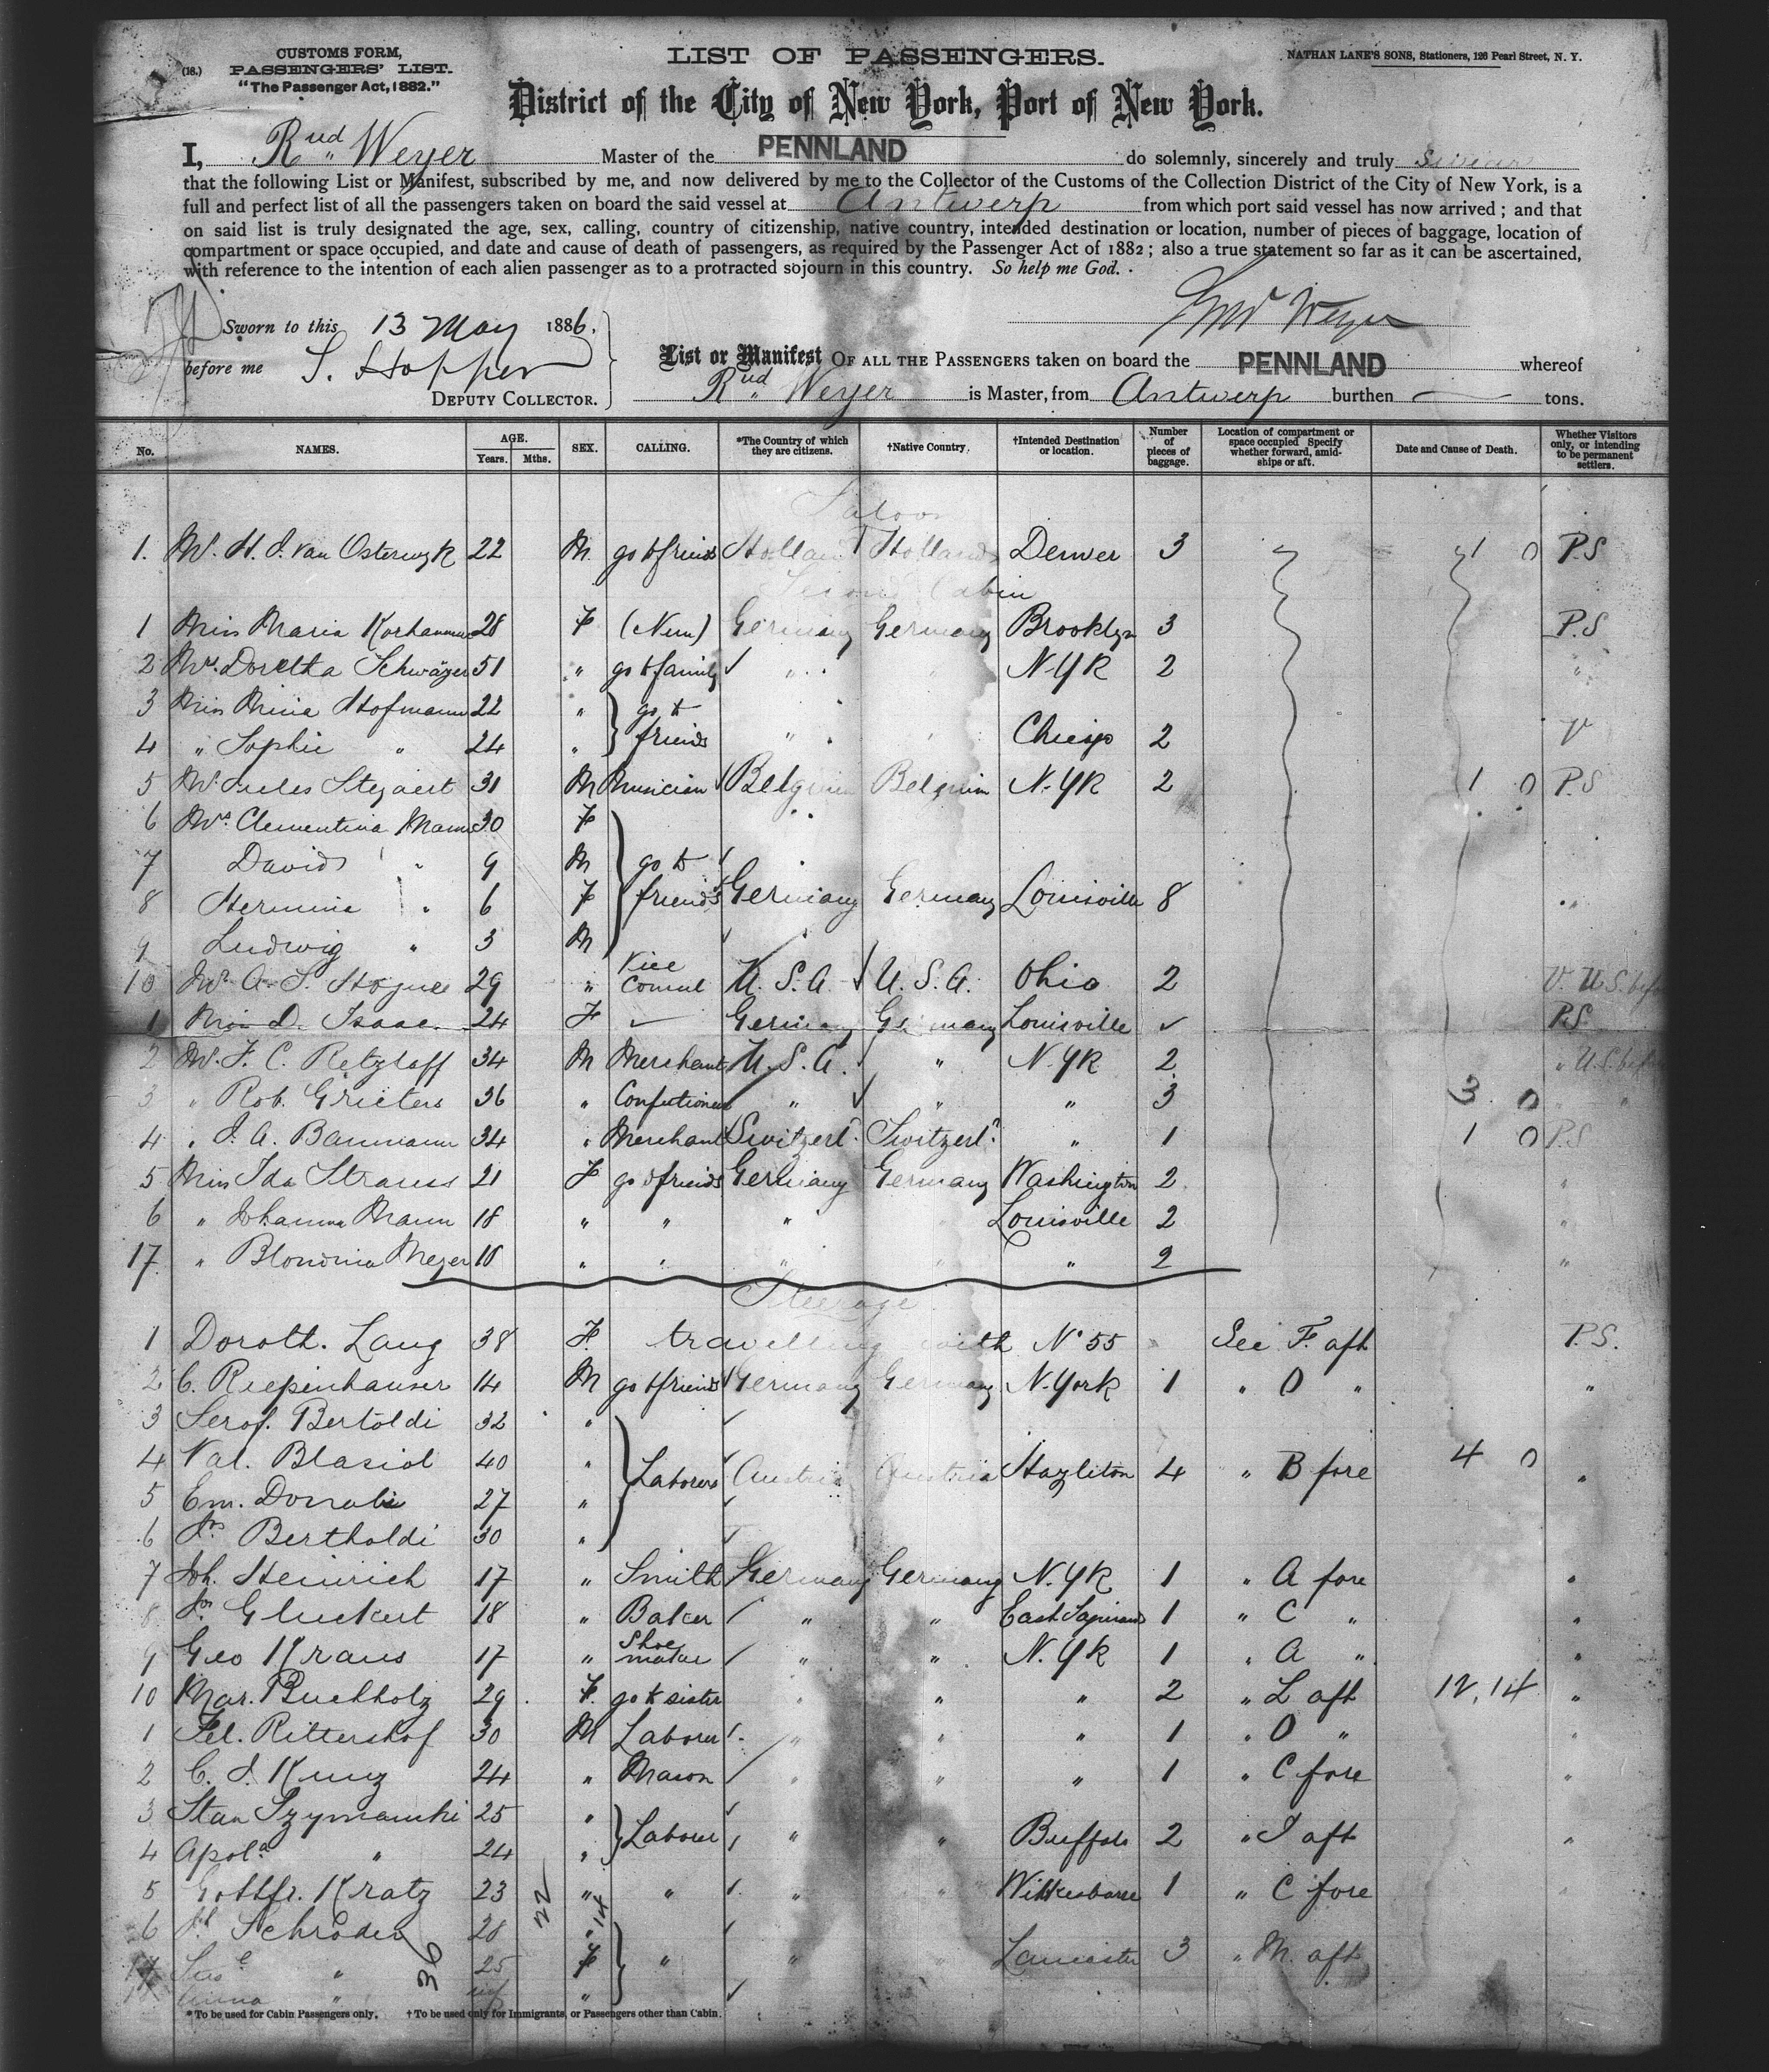 (18.)
CUSTOMS FORM,
PASSENGERS' LIST.
"The Passenger Act, 1882."
LIST OF PASSENGERS.
NATHAN LANE'S SONS, Stationers, 126 Pearl Street, N. Y.
District of the City of New York, Port of New York.
I, Rud Weyer Master of the PENNLAND do solemnly, sincerely and truly
that the following List or Manifest, subscribed by me, and now delivered by me to the Collector of the Customs of the Collection District of the City of New York, is a
full and perfect list of all the passengers taken on board the said vessel at Antwerp from which port said vessel has now arrived; and that
on said list is truly designated the age, sex, calling, country of citizenship, native country, intended destination or location, number of pieces of baggage, location of
compartment or space occupied, and date and cause of death of passengers, as required by the Passenger Act of 1882; also a true statement so far as it can be ascertained,
with reference to the intention of each alien passenger as to a protracted sojourn in this country. So help me God.
Sworn to this 13 May 1886, Weyer
before me S. Hopper
DEPUTY COLLECTOR.
List or Manifest OF ALL THE PASSENGERS taken on board the PENNLAND whereof
Rud Weyer is Master, from Antwerp burthen tons.
No. NAMES. AGE. Years. Mths. SEX. CALLING. *The Country of which they are citizens. †Native Country. †Intended Destination or location. Number of pieces of baggage. Location of compartment or space occupied Specify whether forward, amidships or aft. Date and Cause of Death. Whether Visitors only, or intending to be permanent settlers.
Saloon
1. Mr. H. J. van Osterwyk 22 M go to friends Holland Holland Denver 3 1 0 P.S
Second Cabin
1 Miss Maria 28 F (Nun) Germany Germany Brooklyn 3 P.S
2 Mrs. Doretha Schwäzer 51 " go to family " " N-YK 2 "
3 Miss Mina Hofmann 22 " go to
4 " Sophie " 24 " friends " " Chicago 2 V
5 Mr Jules Steyaert 31 M Musician Belgium Belgium N-YK 2 1 0 P.S
6 Mrs Clementina Mann 30 F
7 David " 9 M go to
8 Hermina " 6 F friends Germany Germany Louisville 8 "
9 Ludwig " 3 M
10 Mr A. S. 29 " Vice Consul U.S.A. U.S.A. Ohio 2 V. U.S.
1 Miss D. Isaac 24 F Germany Germany Louisville P.S.
2 Mr. F. C. Retzlaff 34 M Merchant U.S.A. " N.YK 2 " U.S.
3 " Rob. Grieters 36 " Confectioner " " " 3 3 0 " "
4 " J. A. Baumann 34 " Merchant Switzerld. Switzerld. " 1 1 0 P.S
5 Miss Ida Strauss 21 F go to friends Germany Germany Washington 2 "
6 " Johanna Mann 18 " " " Louisville 2 "
17 " Blondina Meyer 18 " " " " " 2 "
Steerage
1 Doroth. Lang 38 F. travelling with No 55 Sec F. aft P.S.
2 C. Riepenhauser 14 M go to friends Germany Germany N-York 1 " O " "
3 Seraf. Bertoldi 32 "
4 Val. Blasiol 40 " Laborers Austria Austria Hazliton 4 " B fore 4 0 "
5 Em. 27 "
6 Bertholdi 30 "
7 Joh. Heinrich 17 " Smith Germany Germany N.YK 1 " A fore "
8 Gluckert 18 " Baker " " East 1 " C " "
9 Geo Kraus 17 " Shoe maker " " N.YK 1 " A " "
10 Mar. Buchholz 29 F. go to sister " " " 2 " L aft 12,14 "
1 Fel. Rittershof 30 M Laborer " " " 1 " O " "
2 C. J. Kunz 24 " Mason " " " 1 " C fore "
3 Stan Szymanski 25 "
4 Apola " 24 " Laborer " " Buffalo 2 " J aft "
5 Gottfr. Kratz 23 " " " " Wilkesbarre 1 " C fore
6 Schröder 28 "
25 F " " Lancaster 3 " M. aft
Anna " inf "
36 22 14
*To be used for Cabin Passengers only. †To be used only for Immigrants, or Passengers other than Cabin.